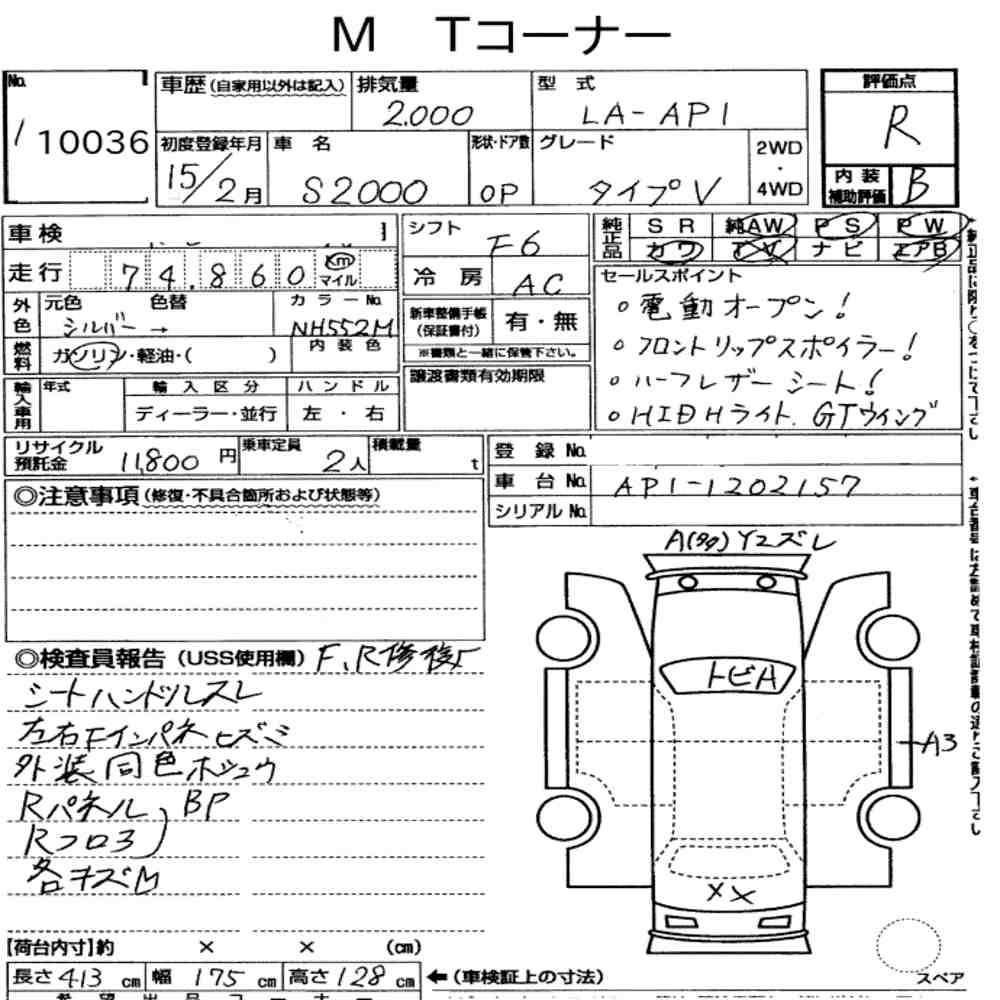 M Tコーナー
No.
110036
車歴(自家用以外は記入)
排気量
2.000
型式
LA-AP1
評価点
R
初度登録年月
15/2月
車名
S2000
形状・ドア数
OP
グレード
タイプV
2WD
・
4WD
内装
補助評価
B
車検
走行 74.860 Km
マイル
シフト
F6
冷房
AC
純正品
SR 純AW PS PW
カワ TV ナビ エアB
外色
元色 色替
シルバー →
カラーNo.
NH552M
燃料
ガソリン・軽油・( )
内装色
新車整備手帳
(保証書付)
有・無
※書類と一緒に保管下さい。
セールスポイント
○電動オープン!
○フロントリップスポイラー!
○ハーフレザーシート!
○HIDHライト.GTウイング
輸入車用
年式
輸入区分
ハンドル
ディーラー・並行
左・右
譲渡書類有効期限
リサイクル
預託金
11,800円
乗車定員
2人
積載量
t
登録No.
車台No. AP1-1202157
シリアルNo.
◎注意事項(修復・不具合箇所および状態等)
◎検査員報告(USS使用欄) F、R修復
シートハンドルスレ
左右Fインパネヒズミ
外装同色ホシュウ
Rパネル、BP
Rフロア
各キズM
A(多) Y2ズレ
トビA
A3
XX
スペア
【荷台内寸】約 × × (cm)
長さ413cm 幅175cm 高さ128cm
←(車検証上の寸法)